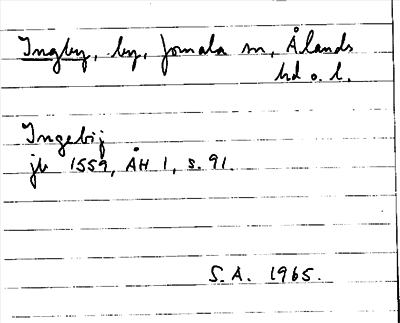 Ingby, by, Jomala sn, Ålands
hd o. l.
Ingebij
jb 1559, ÅH 1, s. 91.
S.A. 1965.